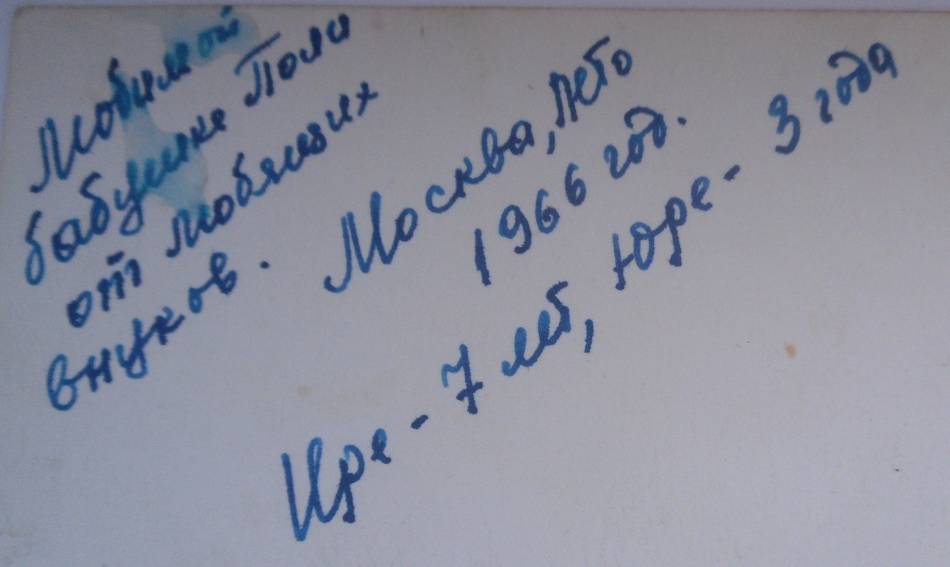 Любимой
бабушке Поли
от любящих
внуков.
Москва, лето
1966 год.
Ире - 7 лет, Юре - 3 года